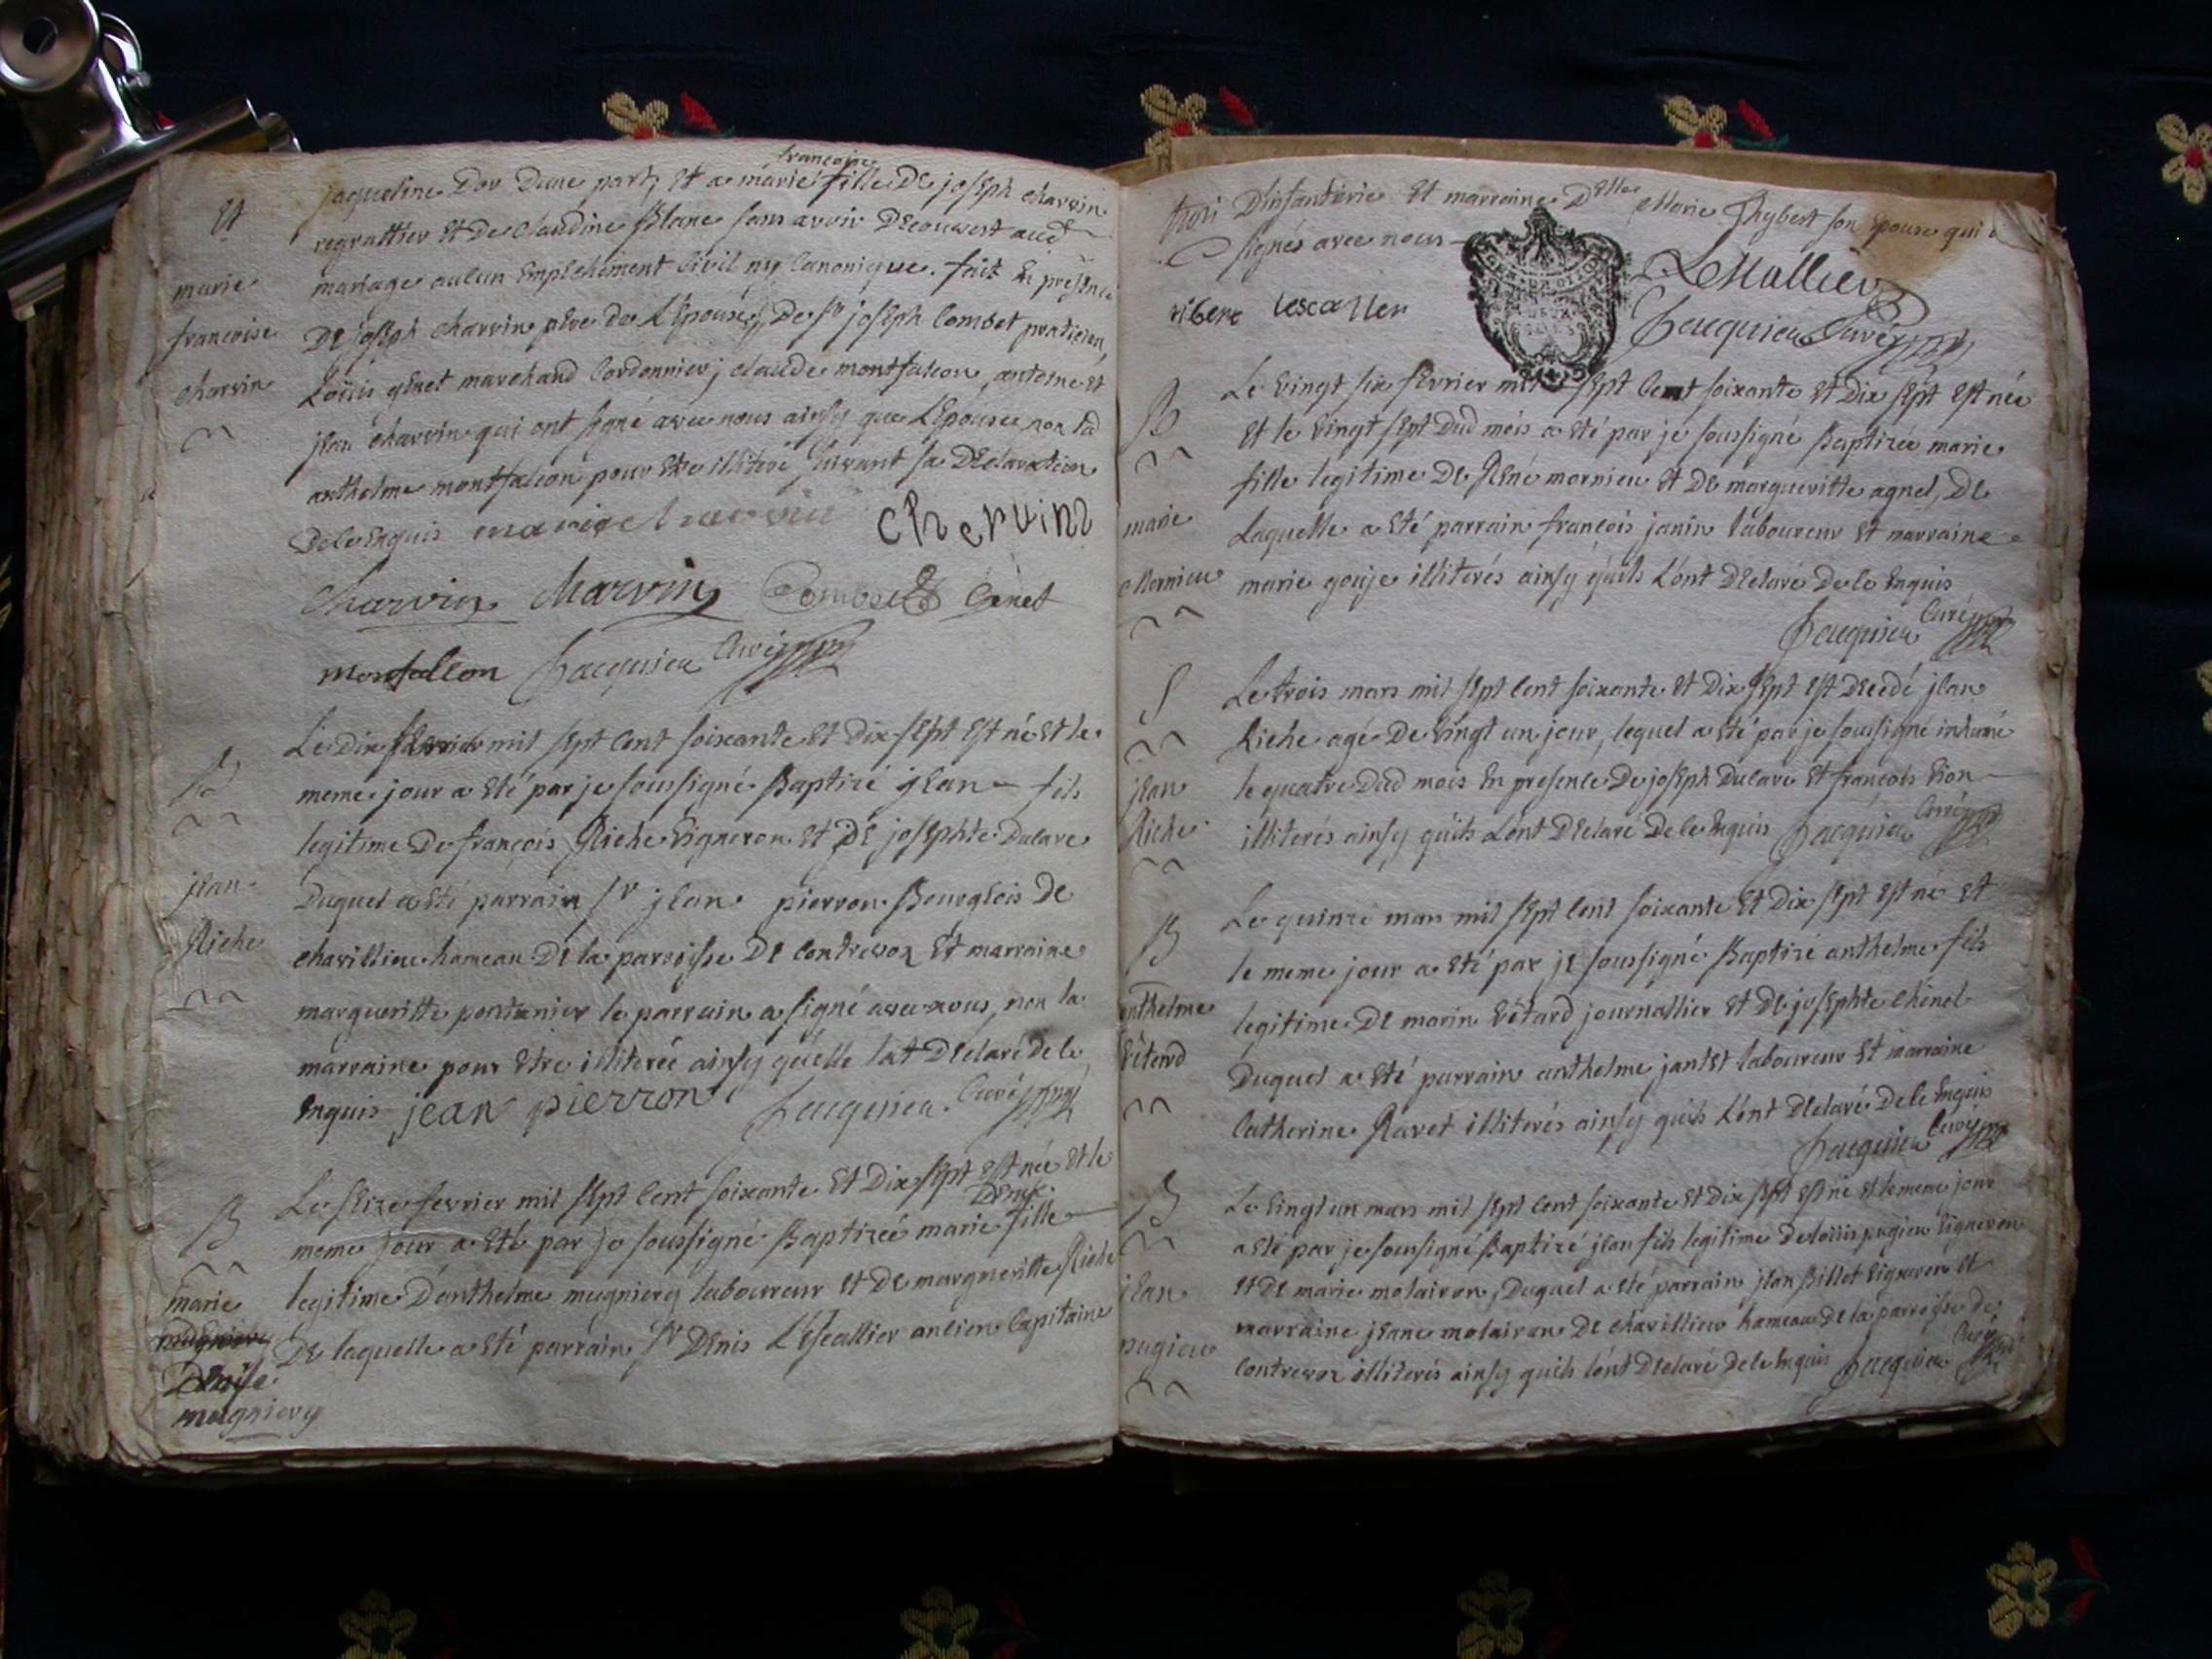 Et
marie
francoise
charvin
francoise
jaqueline Dor Dune part, Et a marie fille De joseph charvin
regrattier Et De Claudine Blanc sans avoir Decouvert aud
mariage aucun Empechement Civil ny Canonique. fait En presence
De joseph charvin pere de L'Epouse, De Sr joseph Combet praticien,
Loüis genet marchand Cordonnier, claude montfalcon, antoine Et
jean charvin qui ont signé avec nous ainsy que L'Epouse, non led
anthelme montfalcon pour Etre illiteré suivant sa Declaration
De le Enquis marie charvin chervins
Charvin Charvin Combet Genet
monfalcon Jacquieu Curé
B
jean
Riche
Le dix fevrier mil sept Cent soixante Et Dix sept Est né Et le
meme jour a Eté par je soussigné Baptizé jean fils
legitime De françois Riche Vigneron Et De josephte Dulare
Duquel a Eté parrain Sr jean pierron Bourgeois De
chavillieu hameau De la parroisse De Contrevoz Et marraine
margueritte pontanier le parrain a signé avec nous, non la
marraine pour Etre illiterée ainsy qu'elle l'at Declaré de le
Enquis jean pierron Jacquieu Curé
B
marie
Denise
mugniery
Le seize fevrier mil sept Cent soixante Et Dix sept Est née Et le
Denise
meme jour a Eté par je soussigné Baptizée marie fille
legitime D'anthelme mugniery laboureur Et De margueritte Riche
De laquelle a Eté parrain Sr Denis L'Escallier ancien Capitaine
D'infanterie Et marraine Delle Marie Thybert son Epouse qui
signés avec nous
Lescallier
Jacquieu Curé
B
marie
Mornieu
Le Vingt six fevrier mil sept Cent soixante Et Dix sept Est née
Et le Vingt sept Dud mois a Eté par je soussigné Baptizée marie
fille legitime De René mornieu Et De margueritte agnel, De
Laquelle a Eté parrain françois janin laboureur Et marraine
marie gouje illiterés ainsy qu'ils L'ont Declaré De le Enquis
Jacquieu Curé
S
jean
Riche
Le trois mars mil sept Cent soixante Et Dix sept Est Decedé jean
Riche agé De Vingt un jour, lequel a Eté par je soussigné inhumé
le quatre Dud mois En presence De joseph Dulare Et françois Vion
illiterés ainsy qu'ils L'ont Declaré De le Enquis Jacquieu Curé
B
anthelme
Vétard
Le quinze mars mil sept Cent soixante Et Dix sept Est né Et
le meme jour a Eté par je soussigné Baptizé anthelme fils
legitime De marin Vétard journallier Et De josephte Chenel
Duquel a Eté parrain anthelme jantet laboureur Et marraine
Catherine Ravet illiterés ainsy qu'ils L'ont Declaré De le Enquis
Jacquieu Curé
B
jean
pugieu
Le Vingt un mars mil sept Cent soixante Et Dix sept Est né Et le meme jour
a Eté par je soussigné Baptizé jean fils legitime De loüis pugieu Vigneron
Et De marie molairon, Duquel a Eté parrain jean Billet Vigneron Et
marraine jeane molairon De chavillieu hameau De la parroisse De
Contrevoz illiterés ainsy qu'ils l'ont Declaré De le Enquis Jacquieu Curé